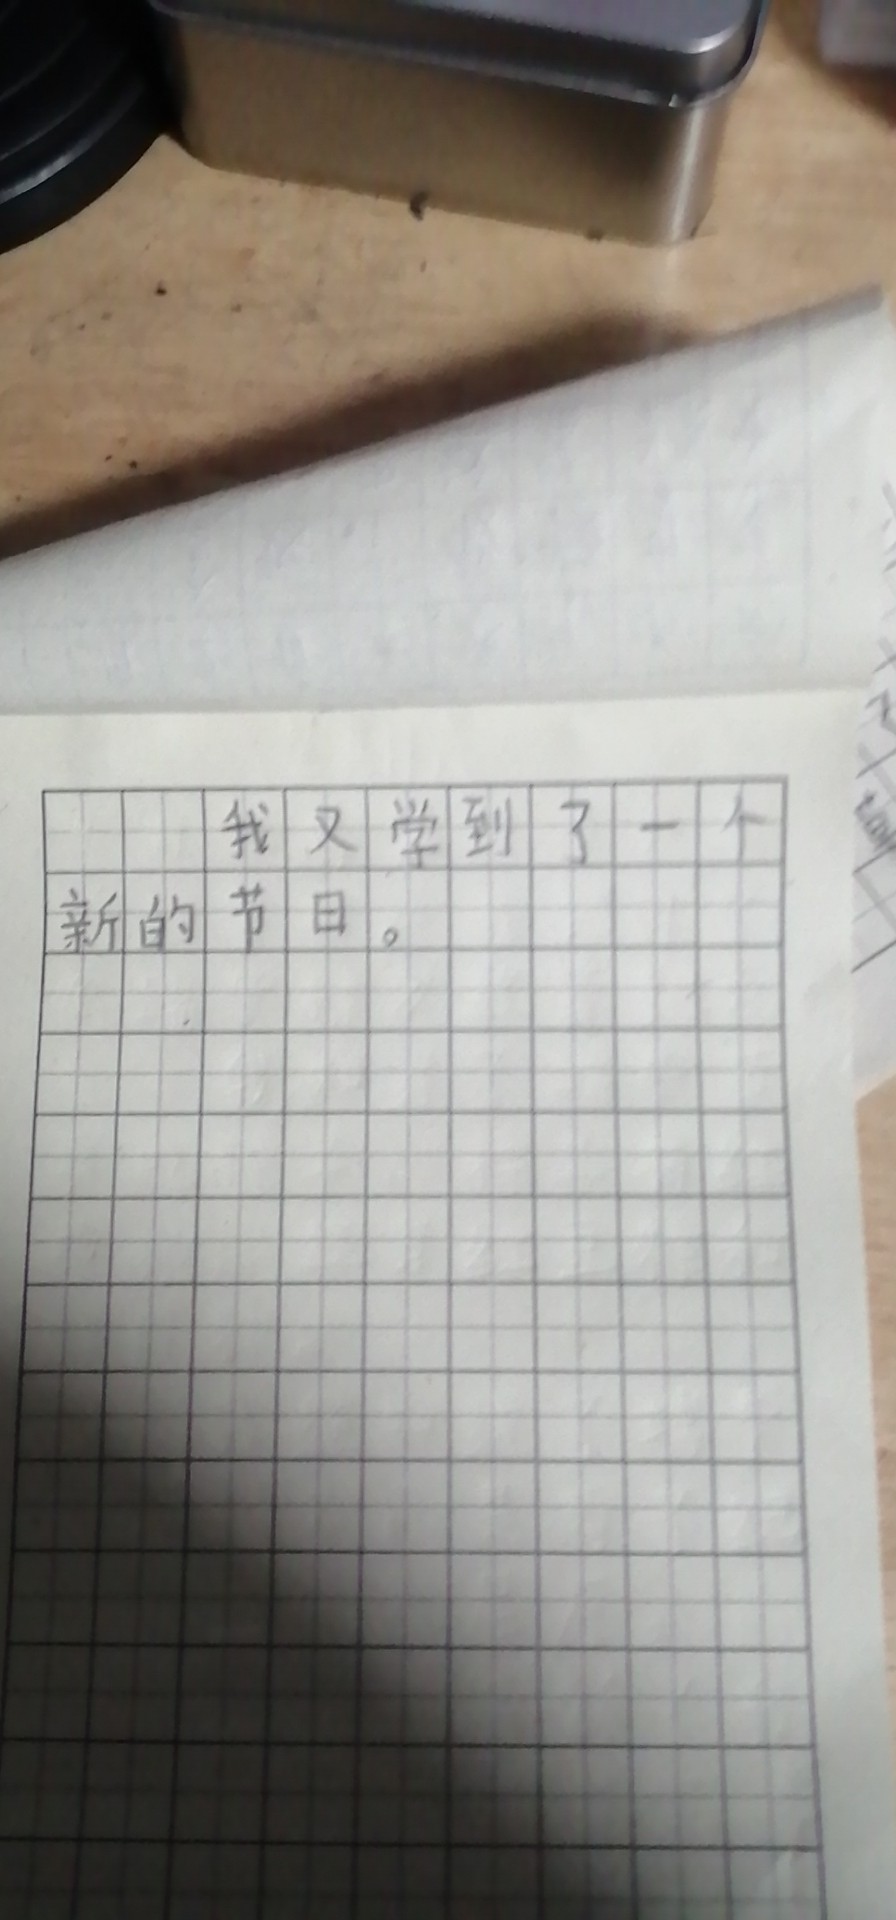 我又学到了一个
新的节日。